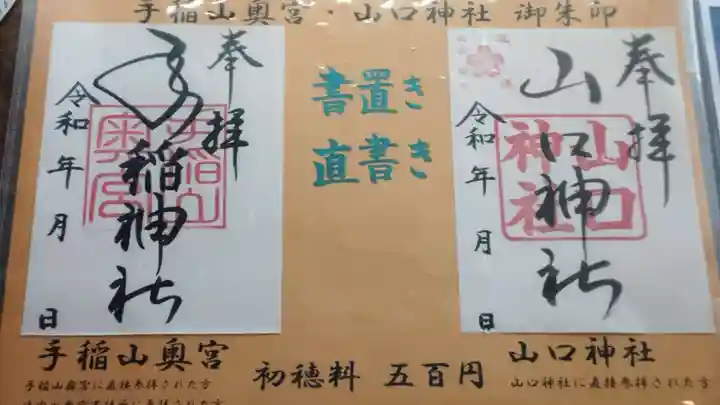 手稲山奥宮・山口神社 御朱印
奉拝
手稲神社
手稲山
奥宮
令和 年 月 日
書置き
直書き
奉拝
山口神社
山口
神社
令和 年 月 日
手稲山奥宮
手稲山奥宮に直接参拝された方
初穂料 五百円
山口神社
山口神社に直接参拝された方